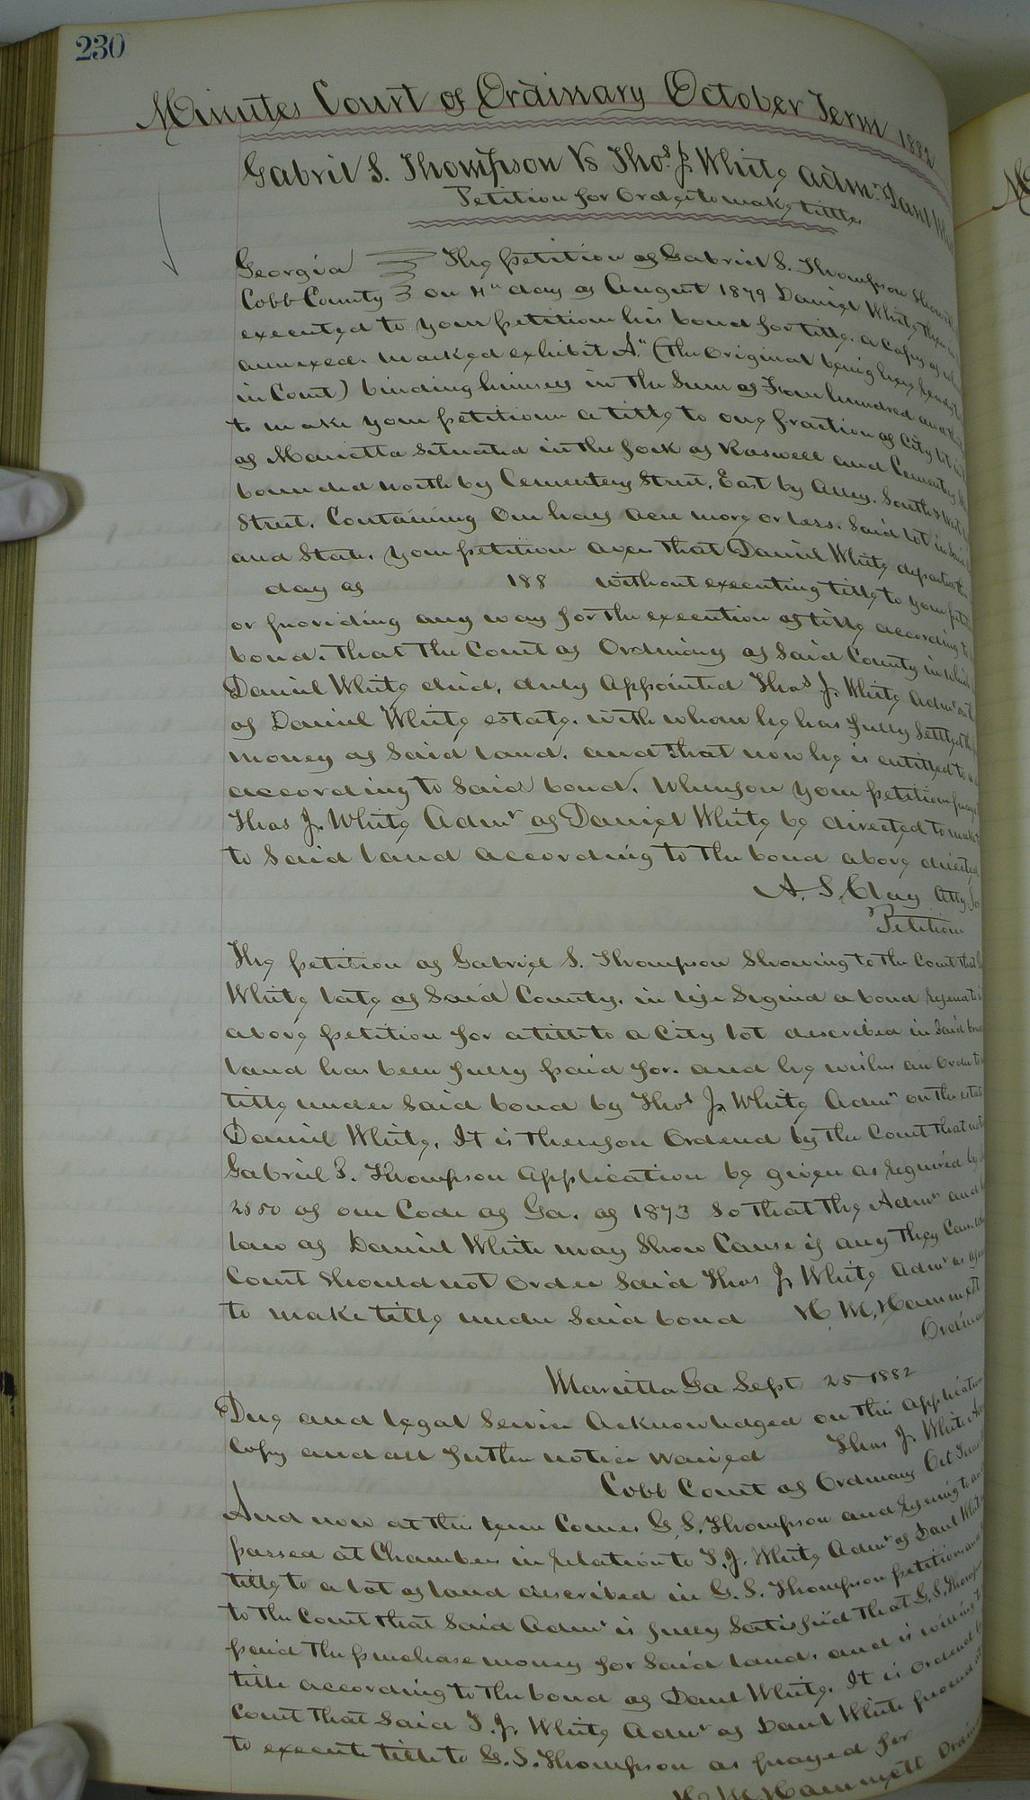 230
Minutes Court of Ordinary October Term 1882
Gabriel S. Thompson Vs Thos. J. White Adm.r Danl
Petition for Order to make title
Georgia The petition of Gabriel S. Thompson
Cobb County on 4th day of August 1879 Daniel White then
executed to your petition his bond for title, a copy of
annexed. marked exhibit A." (the Original being here
in Court) binding himself in the Sum of Four hundred
to make your petition a title to one fraction of City lot
of Marietta Situated in the fork of Roswell and Cemetery
bounded North by Cemetery Street, East by Alley, South & West
Street, Containing One half acre more or less. Said lot in said
and State. your petition aver that Daniel White departed
day of 188 without executing title to your
or providing any way for the execution of title according to
bond. that the Court of Ordinary of Said County in which
Daniel White died, duly appointed Thos J. White Admr
of Daniel White estate, with whom he has fully settled
money of Said land, and that now he is entitled to
according to Said bond. Wherefore your petition
Thos J. White Admr of Daniel White be directed to make
to Said land according to the bond above directed
A. S. Clay Atty for
Petition
The petition of Gabriel S. Thompson Showing to the Court that
White late of Said County, in life Signed a bond
above petition for a title to a City lot described in Said
land has been fully paid for. and he wishes an Order
title under Said bond by Thos J. White Admr on the
Daniel White. It is therefore Ordered by the Court that
Gabriel S. Thompson Application be given as required by
2550 of our Code of Ga. of 1873 So that the Admr and
law of Daniel White may Show Cause if any they can
Court Should not order Said Thos J. White Admr as
to make title under Said bond H. M. Hammett
Ordinary
Marietta Ga Sept 25 1882
Due and legal Service Acknowledged on this Application
Copy and all further notice waived Thos J. White
Cobb Court of Ordinary Oct Term
And now at this term Comes G. S. Thompson and
passed at Chambers in relation to T. J. White Admr of Danl White
title to a lot of land described in G. S. Thompson petition
to the Court that Said Admr is fully Satisfied that G. S.
paid the purchase money for Said land, and is willing to
title according to the bond of Danl White. It is Ordered by
Court that Said T. J. White Admr of Danl White proceed
to execute title to G. S. Thompson as prayed for
H. M. Hammett